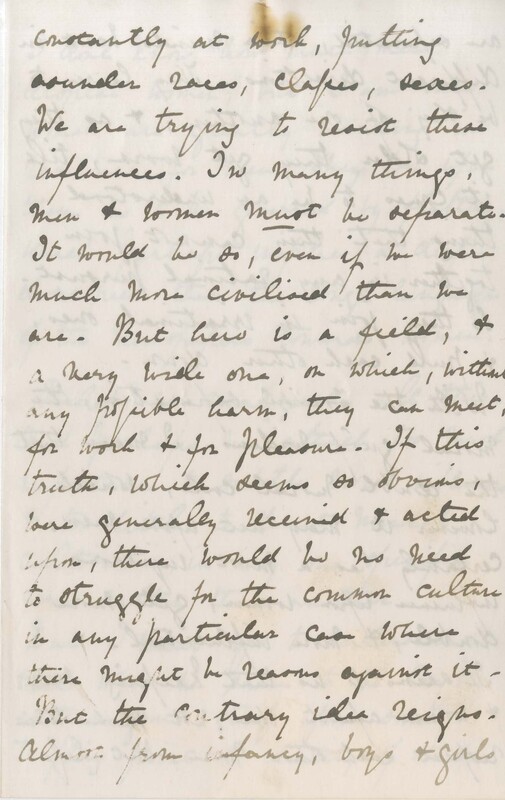 constantly at work, putting
asunder races, classes, sexes.
We are trying to resist these
influences. In many things,
men & women must be separate.
It would be so, even if we were
much more civilised than we
are. But here is a field, &
a very wide one, on which, without
any possible harm, they can meet,
for work & for pleasure. If this
truth, which seems so obvious,
were generally received & acted
upon, there would be no need
to struggle for the common culture
in any particular case where
there might be reasons against it.
But the contrary idea reigns.
Almost from infancy, boys & girls